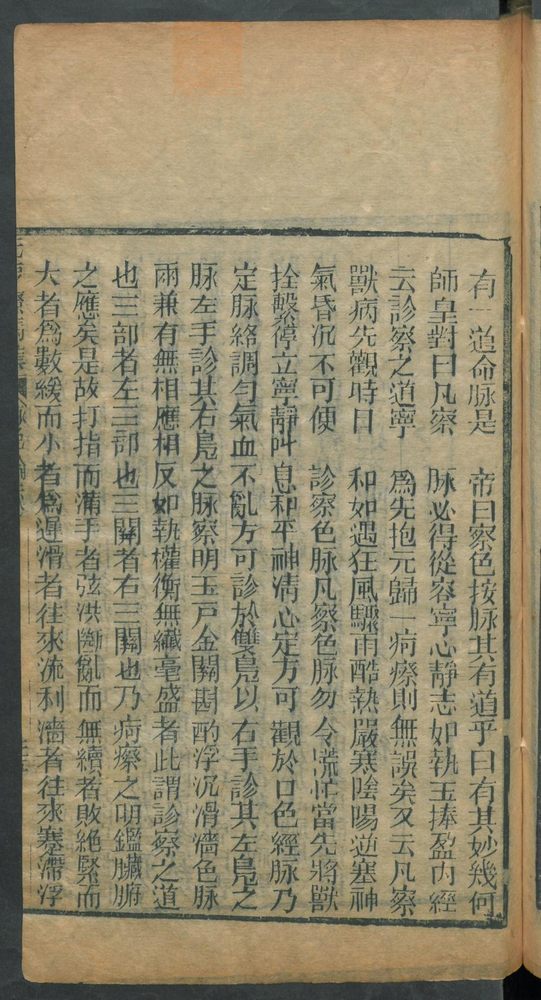 有一道命脉是　帝曰察色按脉其有道乎曰有其妙幾何
師皇對曰凡察　脉必得從容寧心靜志如執玉捧盈內經
云診察之道寧　爲先抱元歸一痾瘵則無誤矣又云凡察
獸病先觀時日　和如遇狂風驟雨酷熱嚴寒陰陽逆塞神
氣昏沉不可便　診察色脉凡察色脉勿令慌忙當先將獸
拴繫停立寧靜叫息和平神清心定方可觀於口色經脉乃
定脉絡調勻氣血不亂方可診於雙鳧以右手診其左鳧之
脉左手診其右鳧之脉察明玉戸金關斟酌浮沉滑濇色脉
兩兼有無相應相反如執權衡無纖毫盛者此謂診察之道
也三部者左三部也三關者右三關也乃痾瘵之明鑑臟腑
之應矣是故打指而滿手者弦洪斷亂而無續者敗絶緊而
大者爲數緩而小者爲遲滑者往來流利濇者往來塞滯浮